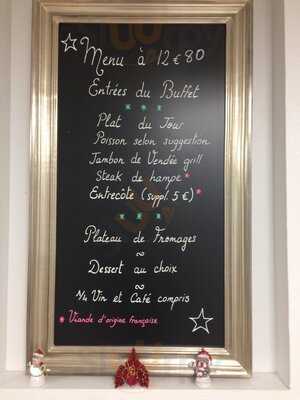 Menu à 12€80
Entrées du Buffet
* * *
Plat du Jour
Poisson selon suggestion
Jambon de Vendée grill
Steak de hampe *
Entrecôte (suppl. 5€) *
* * *
Plateau de Fromages
~
Dessert au choix
~
1/4 Vin et Café compris
* Viande d'origine française